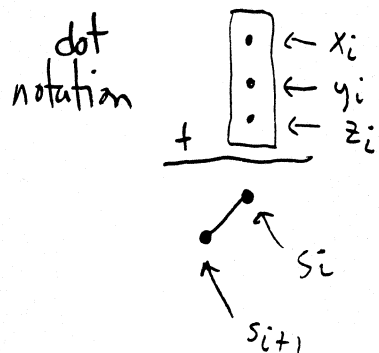 dot
notation
← xᵢ
← yᵢ
← zᵢ
+
sᵢ
sᵢ₊₁